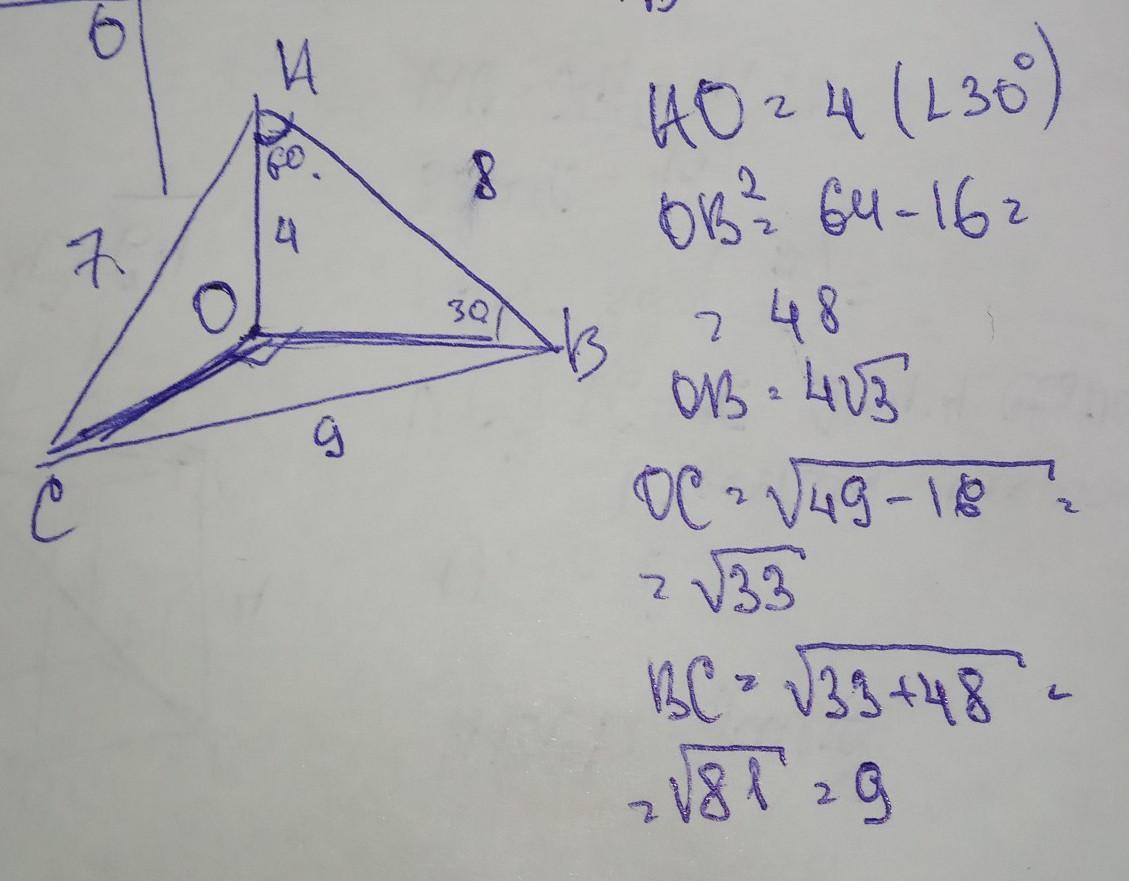 6
A
60.
8
4
7
O
30
B
9
C
AO = 4 (∠30°)
OB² = 64 - 16 =
= 48
OB = 4√3
OC = √49 - 16 =
= √33
BC = √33 + 48 =
= √81 = 9